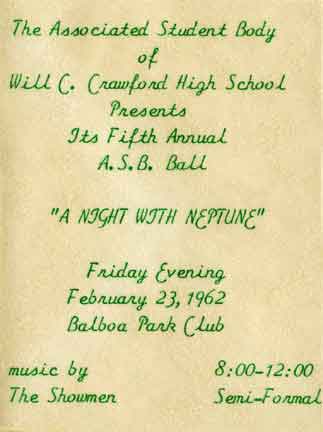 The Associated Student Body
of
Will C. Crawford High School
Presents
Its Fifth Annual
A.S.B. Ball
"A NIGHT WITH NEPTUNE"
Friday Evening
February 23, 1962
Balboa Park Club
music by 8:00-12:00
The Showmen Semi-Formal